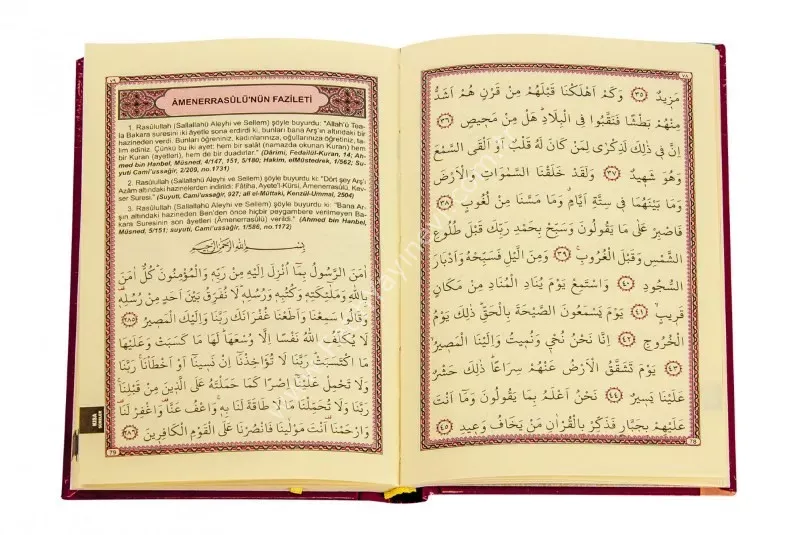 ٧٨
مَزِيدٌ ﴿٣٥﴾ وَكَمْ اَهْلَكْنَا قَبْلَهُمْ مِنْ قَرْنٍ هُمْ اَشَدُّ
مِنْهُمْ بَطْشًا فَنَقَّبُوا فِي الْبِلَادِۜ هَلْ مِنْ مَحِيصٍ ﴿٣٦﴾
اِنَّ فِي ذٰلِكَ لَذِكْرٰى لِمَنْ كَانَ لَهُ قَلْبٌ اَوْ اَلْقَى السَّمْعَ
وَهُوَ شَهِيدٌ ﴿٣٧﴾ وَلَقَدْ خَلَقْنَا السَّمٰوَاتِ وَالْاَرْضَ
وَمَا بَيْنَهُمَا فِي سِتَّةِ اَيَّامٍۗ وَمَا مَسَّنَا مِنْ لُغُوبٍ ﴿٣٨﴾
فَاصْبِرْ عَلٰى مَا يَقُولُونَ وَسَبِّحْ بِحَمْدِ رَبِّكَ قَبْلَ طُلُوعِ
الشَّمْسِ وَقَبْلَ الْغُرُوبِ ﴿٣٩﴾ وَمِنَ الَّيْلِ فَسَبِّحْهُ وَاَدْبَارَ
السُّجُودِ ﴿٤٠﴾ وَاسْتَمِعْ يَوْمَ يُنَادِ الْمُنَادِ مِنْ مَكَانٍ
قَرِيبٍ ﴿٤١﴾ يَوْمَ يَسْمَعُونَ الصَّيْحَةَ بِالْحَقِّۜ ذٰلِكَ يَوْمُ
الْخُرُوجِ ﴿٤٢﴾ اِنَّا نَحْنُ نُحْيِي وَنُمِيتُ وَاِلَيْنَا الْمَصِيرُ
﴿٤٣﴾ يَوْمَ تَشَقَّقُ الْاَرْضُ عَنْهُمْ سِرَاعًاۜ ذٰلِكَ حَشْرٌ
عَلَيْنَا يَسِيرٌ ﴿٤٤﴾ نَحْنُ اَعْلَمُ بِمَا يَقُولُونَ وَمَا اَنْتَ
عَلَيْهِمْ بِجَبَّارٍ فَذَكِّرْ بِالْقُرْاٰنِ مَنْ يَخَافُ وَعِيدِ ﴿٤٥﴾
78
٧٩
ÂMENERRASÛLÜ'NÜN FAZİLETİ
1. Rasûlullah (Sallallahü Aleyhi ve Sellem) şöyle buyurdu: "Allah'ü Tea-
la Bakara suresini iki âyetle sona erdirdi ki, bunları bana Arş'ın altındaki bir
hazineden verdi. Bunları öğreniniz, kadınlarınıza, oğullarınıza öğretiniz, ta-
lim ediniz. Çünkü bu iki ayet; hem bir salât (namazda okunan Kuran) hem
bir Kuran (ayetleri), hem de bir duadırlar." (Dârimi, Fedailül-Kuran, 14; Ah-
med bin Hanbel, Müsned, 4/147, 151, 5/180; Hakim, elMüstedrek, 1/562; Su-
yuti Cami'ussağir, 2/209, no.1731)
2. Rasûlullah (Sallallahü Aleyhi ve Sellem) şöyle buyurdu: "Dört şey Arş'ı
Azâm altındaki hazinelerden indirildi: Fâtiha, Ayete'l-Kürsi, Âmenerrasûlü, Kev-
ser Suresi." (Suyuti, Cami'ussağir, 927; ali el-Müttaki, Kenzül-Ummal, 2504)
3. Rasûlullah (Sallallahü Aleyhi ve Sellem) şöyle buyurdu ki: "Bana Ar-
şın altındaki hazineden Ben'den önce hiçbir peygambere verilmeyen Ba-
kara Suresinin son âyetleri (Âmenerrasûlü) verildi." (Ahmed bin Hanbel,
Müsned, 5/151; suyuti, Cami'ussağir, 1/586, no.1172)
بِسْمِ اللهِ الرَّحْمٰنِ الرَّحِيمِ
اٰمَنَ الرَّسُولُ بِمَا اُنْزِلَ اِلَيْهِ مِنْ رَبِّهِ وَالْمُؤْمِنُونَۜ كُلٌّ اٰمَنَ
بِاللهِ وَمَلٰئِكَتِهِ وَكُتُبِهِ وَرُسُلِهِۜ لَا نُفَرِّقُ بَيْنَ اَحَدٍ مِنْ رُسُلِهِ
وَقَالُوا سَمِعْنَا وَاَطَعْنَا غُفْرَانَكَ رَبَّنَا وَاِلَيْكَ الْمَصِيرُ ﴿٢٨٥﴾
لَا يُكَلِّفُ اللهُ نَفْسًا اِلَّا وُسْعَهَاۜ لَهَا مَا كَسَبَتْ وَعَلَيْهَا
مَا اكْتَسَبَتْۜ رَبَّنَا لَا تُؤَاخِذْنَا اِنْ نَسِينَا اَوْ اَخْطَأْنَاۚ رَبَّنَا
وَلَا تَحْمِلْ عَلَيْنَا اِصْرًا كَمَا حَمَلْتَهُ عَلَى الَّذِينَ مِنْ قَبْلِنَاۚ
رَبَّنَا وَلَا تُحَمِّلْنَا مَا لَا طَاقَةَ لَنَا بِهِۚ وَاعْفُ عَنَّا۠ وَاغْفِرْ لَنَا۠
وَارْحَمْنَا۠ اَنْتَ مَوْلٰينَا فَانْصُرْنَا عَلَى الْقَوْمِ الْكَافِرِينَ ﴿٢٨٦﴾
79
KISA
SURELER